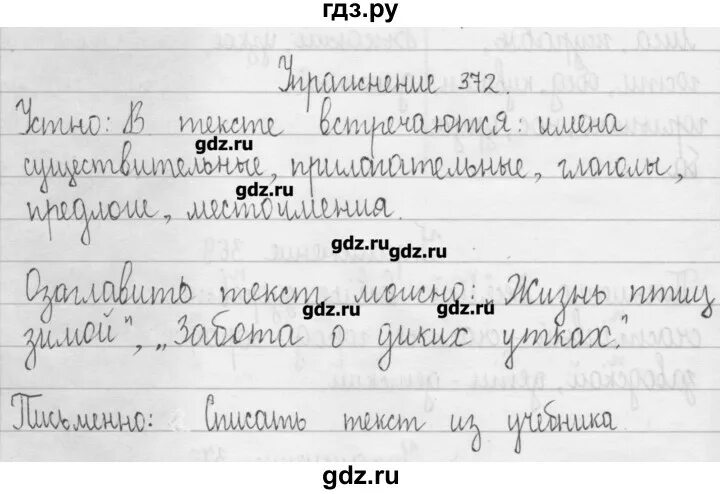 гдз.ру
Упражнение 372.
Устно: В тексте встречаются: имена
gdz.ru
существительные, прилагательные, глаголы,
gdz.ru
предлоги, местоимения.
gdz.ru
gdz.ru
Озаглавить текст можно: "Жизнь птиц
gdz.ru gdz.ru
зимой", "Забота о диких утках."
Письменно: Списать текст из учебника.
gdz.ru